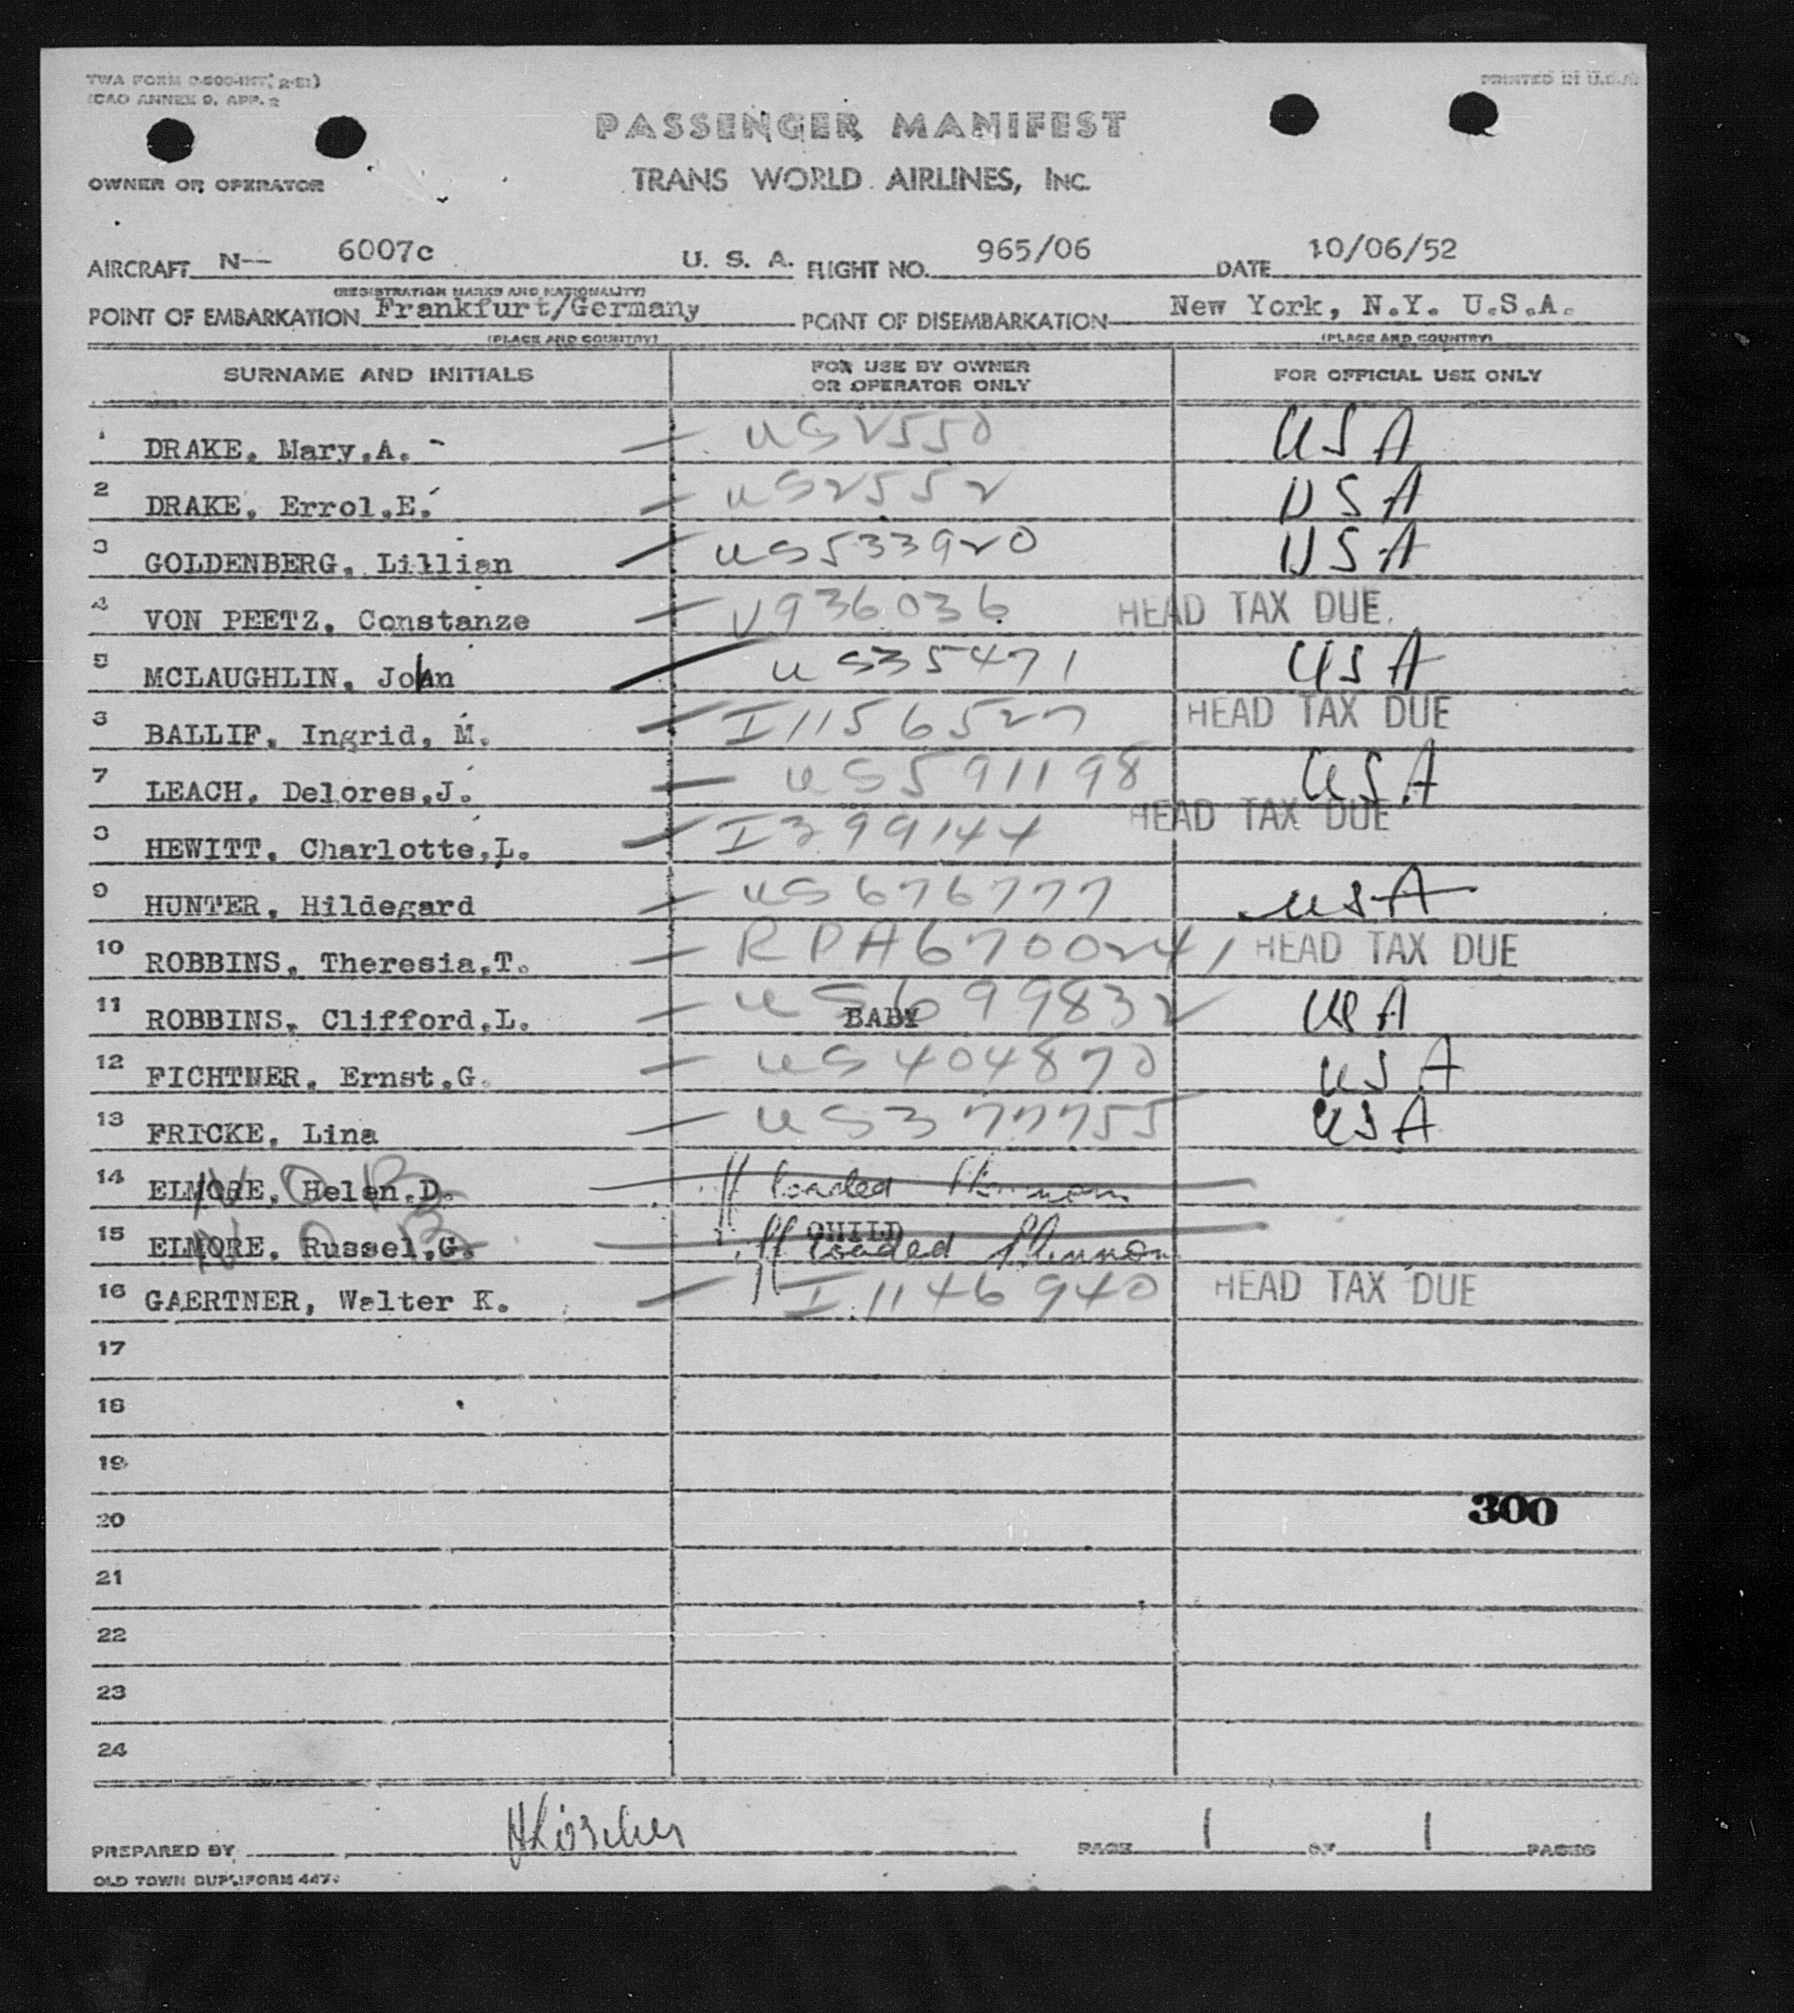 TWA FORM
ICAO ANNEX 9, APP. 2
PRINTED IN U.S.A.
PASSENGER MANIFEST
OWNER OR OPERATOR
TRANS WORLD AIRLINES, INC.
AIRCRAFT N-- 6007c U. S. A. FLIGHT NO. 965/06 DATE 10/06/52
(REGISTRATION MARKS AND NATIONALITY)
POINT OF EMBARKATION Frankfurt/Germany POINT OF DISEMBARKATION New York, N.Y. U.S.A.
(PLACE AND COUNTRY) (PLACE AND COUNTRY)
SURNAME AND INITIALS FOR USE BY OWNER OR OPERATOR ONLY FOR OFFICIAL USE ONLY
1 DRAKE, Mary.A. - US2550 USA
2 DRAKE, Errol.E. US2552 USA
3 GOLDENBERG, Lillian US533920 USA
4 VON PEETZ, Constanze V936036 HEAD TAX DUE
5 MCLAUGHLIN, John US35471 USA
6 BALLIF, Ingrid, M. I1156527 HEAD TAX DUE
7 LEACH, Delores.J. US591198 USA
8 HEWITT, Charlotte.L. I399144 HEAD TAX DUE
9 HUNTER, Hildegard US676777 USA
10 ROBBINS, Theresia.T. RPA6700241 HEAD TAX DUE
11 ROBBINS, Clifford.L. US699832 BABY USA
12 FICHTNER, Ernst.G. US404870 USA
13 FRICKE, Lina US377755 USA
14 ELMORE, Helen.D. N O B off loaded Shannon
15 ELMORE, Russel.G. N O B CHILD off loaded Shannon
16 GAERTNER, Walter K. I1146940 HEAD TAX DUE
17
18
19
20 300
21
22
23
24
PREPARED BY PAGE 1 OF 1 PAGES
OLD TOWN DUPLIFORM